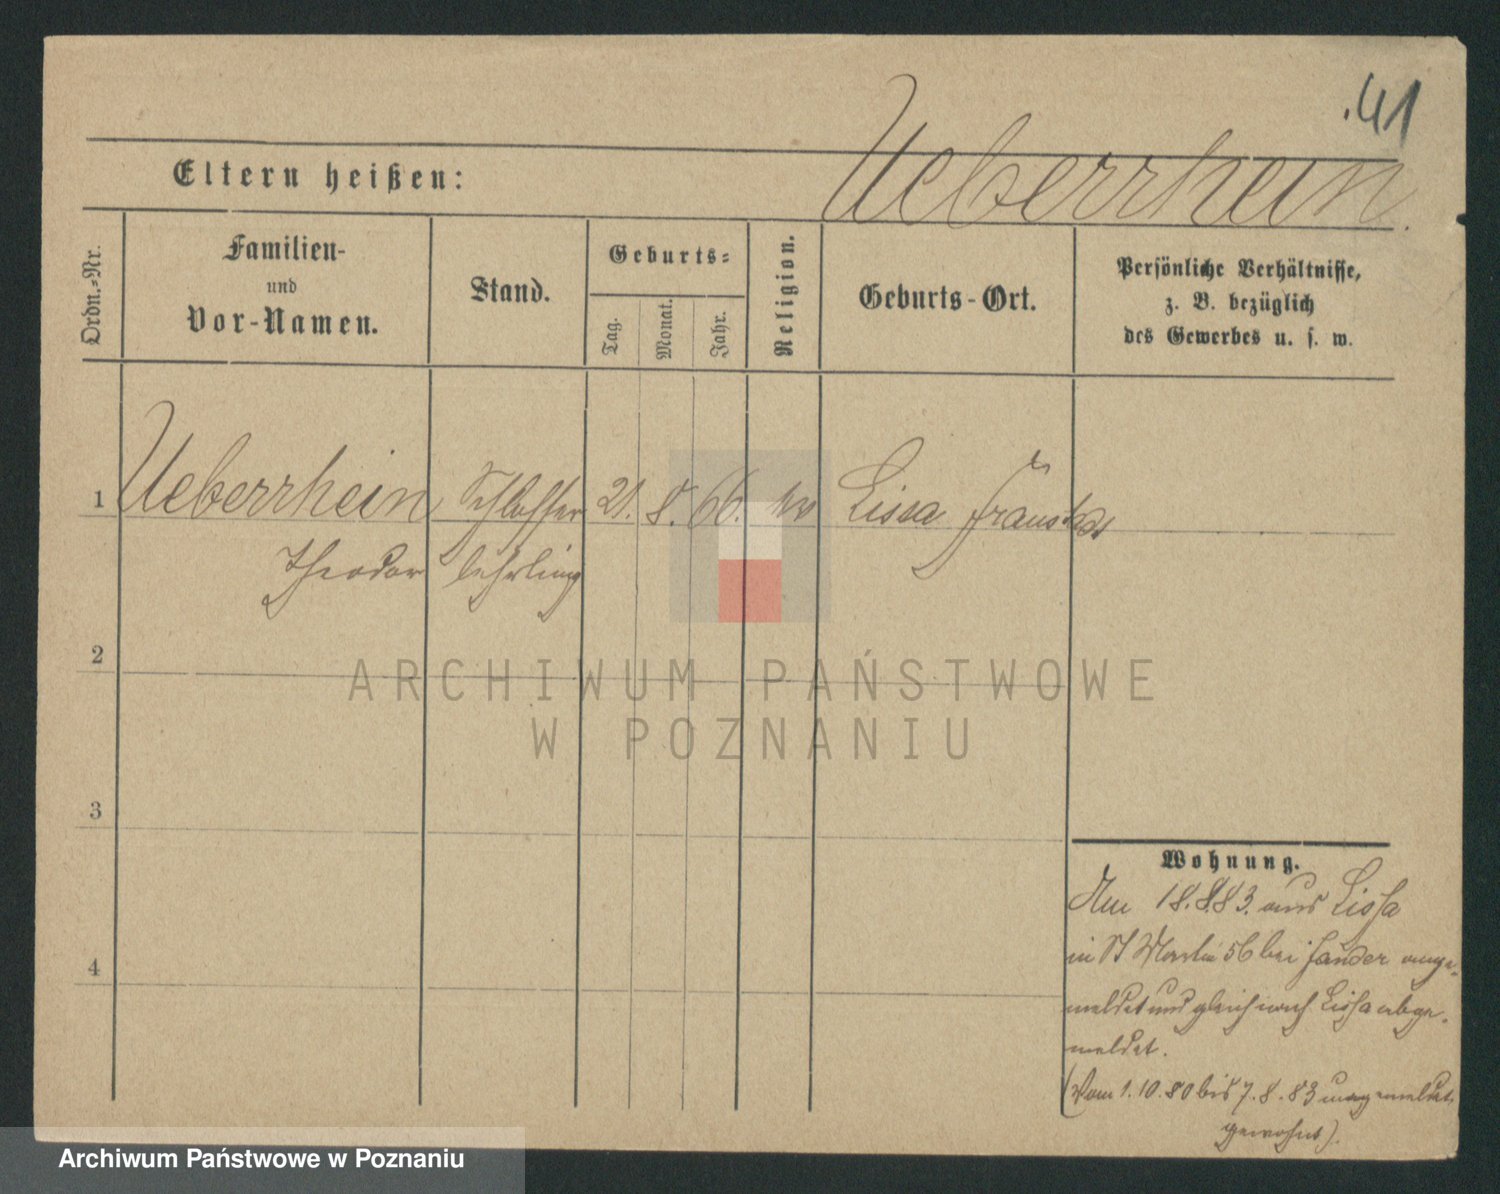 .41
Ueberrhein.
Eltern heißen:
Ordn.-Nr.
Familien-
und
Vor-Namen.
Stand.
Geburts-
Tag.
Monat.
Jahr.
Religion.
Geburts-Ort.
Persönliche Verhältnisse,
z. B. bezüglich
des Gewerbes u. s. w.
1 Ueberrhein Schlosser 21. 8. 66. ev Lissa Fraustadt
Theodor lehrling
2
3
4
Wohnung.
Am 18.8.83. aus Lissa
in St Martin 56 bei Jander ange-
meldet und gleich nach Lissa abge-
meldet.
(Vom 1.10.80 bis 7.8.83 unangemeldet
gewohnt).
ARCHIWUM PAŃSTWOWE
W POZNANIU
Archiwum Państwowe w Poznaniu